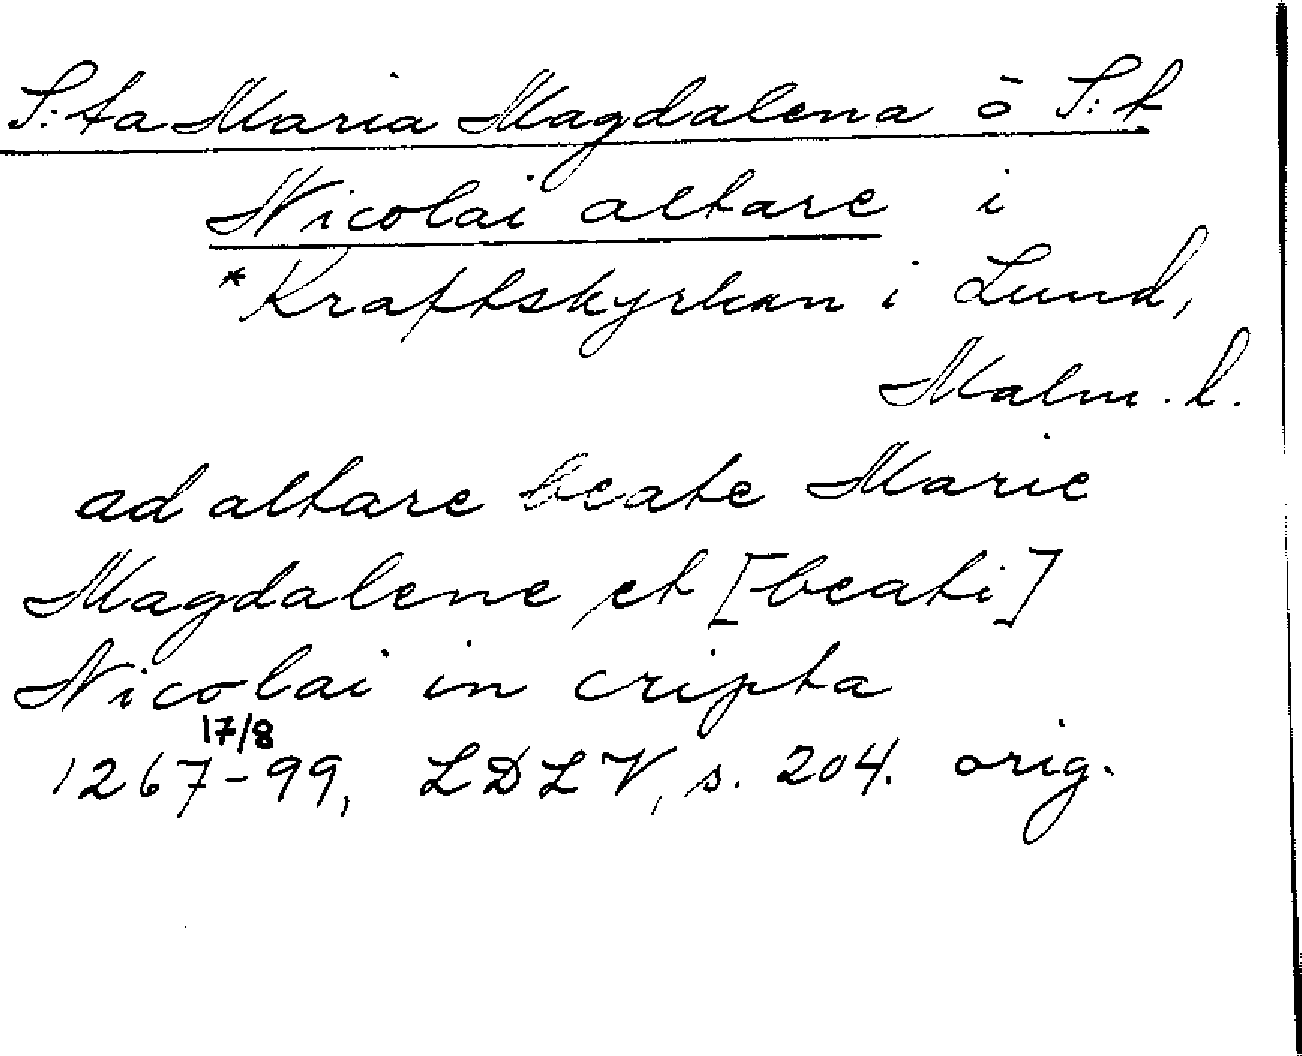 S:ta Maria Magdalena o S:t
Nicolai altare i
*Kraftskyrkan i Lund,
Malm. l.
ad altare beate Marie
Magdalene et [beati]
Nicolai in cripta
17/8
1267-99, LDLV, s. 204. orig.